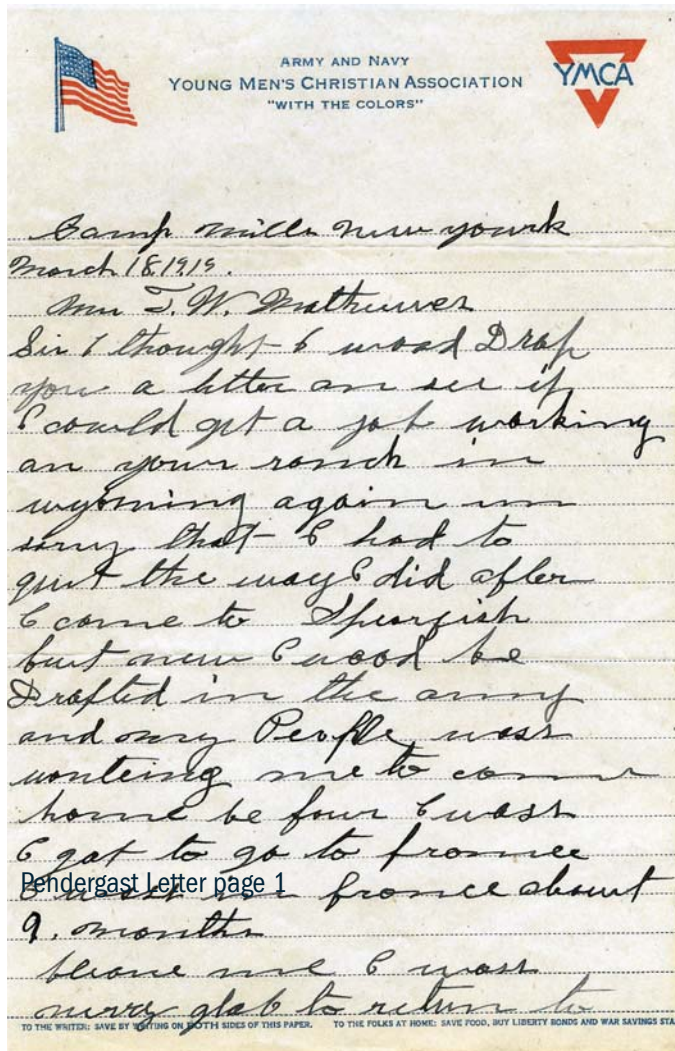 ARMY AND NAVY
YOUNG MEN'S CHRISTIAN ASSOCIATION
"WITH THE COLORS"
YMCA
Camp mills new yourk
March 18, 1919.
Mr T. W. Mathewes
Sir I thought I wood Drop
you a letter an see if
I could get a job working
an your ranch in
wyoming again im
sorry that I had to
quit the way I did after
I come to Spearfish
but new I wood be
Drafted in the army
and my People wass
wonteing me to come
home be four I wass
I got to go to france
Pendergast Letter page 1
I wass in france about
9. months
beleave me I wass
glab to return to
TO THE WRITER: SAVE BY WRITING ON BOTH SIDES OF THIS PAPER. TO THE FOLKS AT HOME: SAVE FOOD, BUY LIBERTY BONDS AND WAR SAVINGS STA